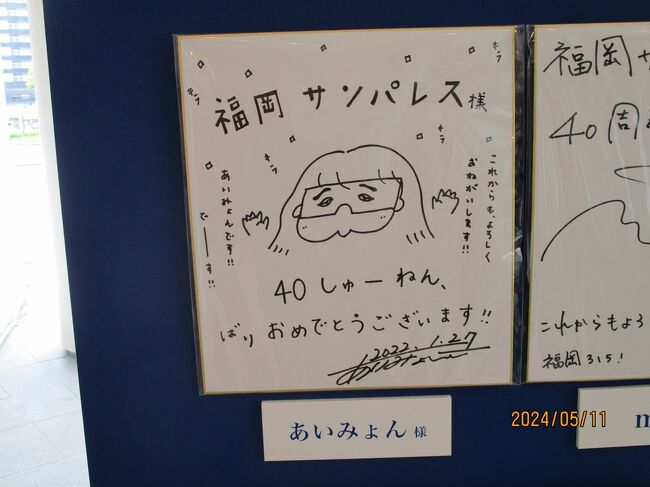 福岡 サンパレス様
キラ
キラ
キラ
キラ
あいみょんです!!
でーーす!!
これからも、よろしく
おねがいします!!
40しゅーねん、
ばりおめでとうございます!!
2022.1.27
あいみょん 様
福岡サ
40周
これからもよろ
福岡315!
m
2024/05/11